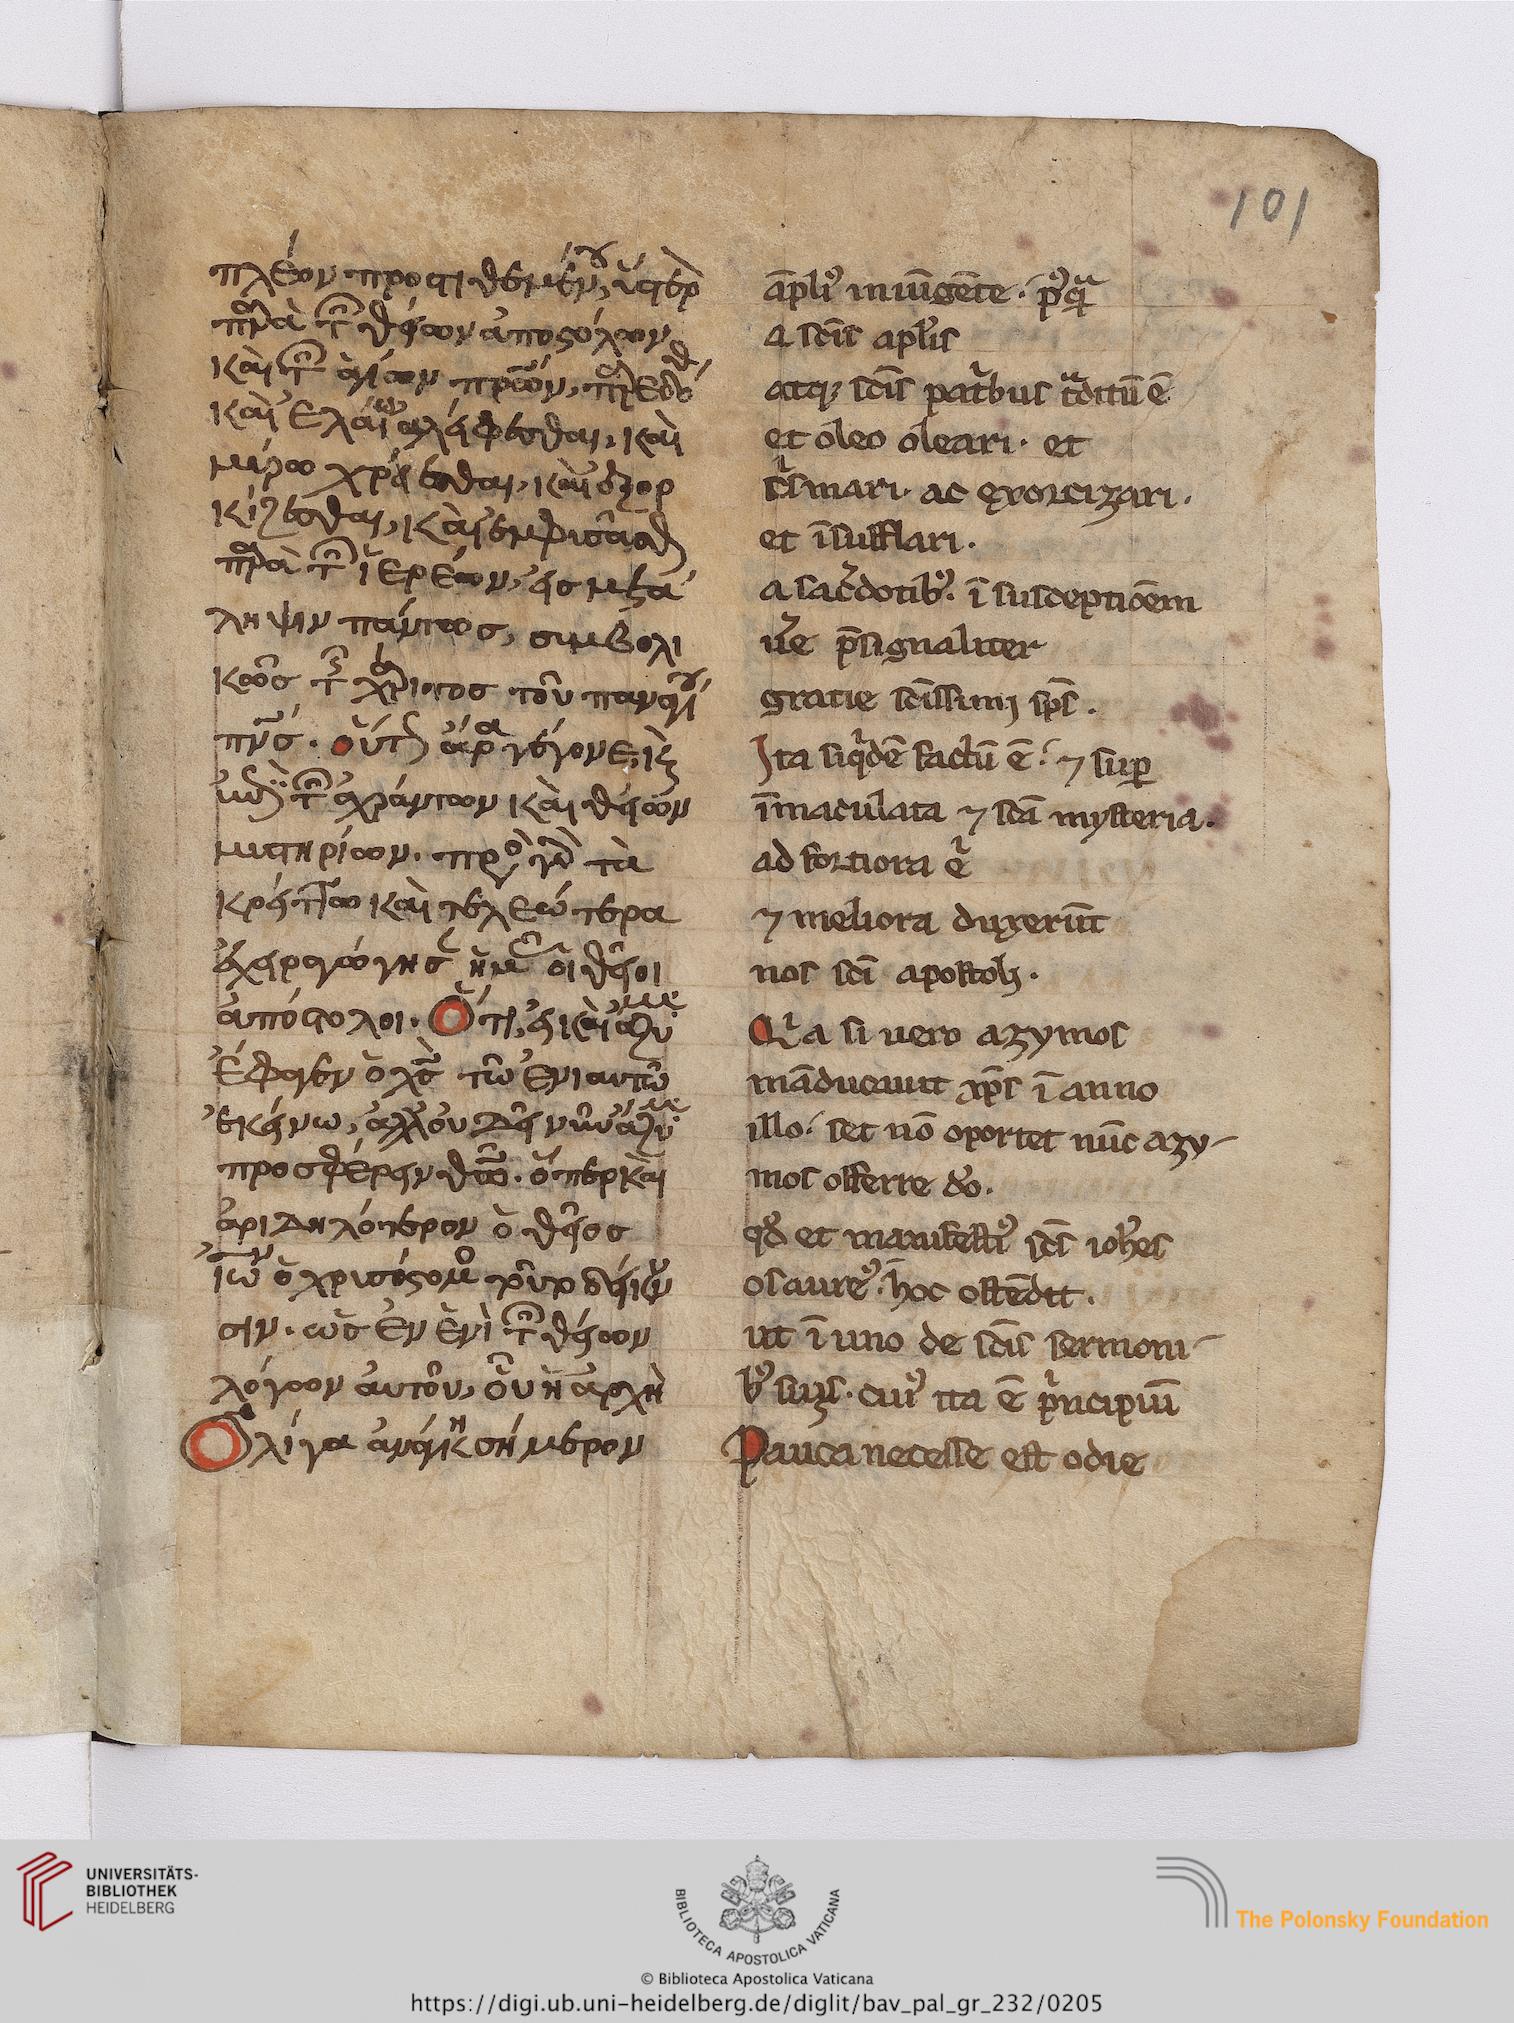 101
πλέον προστιθεμένου, ὅπερ
παρὰ τῶν θείων ἀποστόλων
καὶ τῶν ἁγίων πατέρων, παρεδόθ
καὶ ἐλαίω ἀλείφεσθαι, καὶ
μύρω χρίεσθαι, καὶ ἐξορ
κίζεσθαι, καὶ ἐμφυσᾶσθαι
παρὰ τῶν ἱερέων, εἰς μετά
ληψιν πάντως, συμβολι
κῶς τῆς χάριτος τοῦ παναγίου
πνς. οὕτως ἄρα γέγονε,
τῶν ἀχράντων καὶ θείων
μυστηρίων. πρὸς γὰρ τὰ
κρείττω καὶ τελεώτερα
ἐχειραγώγησαν ἡμᾶς οἱ θεῖοι
ἀπόστολοι. Ὅτι, εἰ καὶ ἄζυμα
ἔφαγεν ὁ χς τῶ ἐνιαυτῶ
ἐκείνω, ἀλλ' οὐ δεῖ νῦν ἄζυμα
προσφέρειν θεῶ. ὅπερ καὶ
ἀριδηλότερον ὁ θεῖος
ἰω ὁ χρυσόστομος
σιν. ὡς ἐν ἑνὶ τῶν θείων
λόγων αὐτοῦ, οὗ ἡ ἀρχὴ
Ὀλίγα ἀνάγκη σήμερον
āpliꝰ iniūgēte. pꝰq̄
a scīs aplis
atq; scīs patbus tdītū ē
et oleo oleari. et
crismari. ac exorcizari.
et īsufflari.
a sacdotibꝰ. ī susceptioēm
ūe p̄signaliter
gratie scīssimi sps̄.
Ita siqdē factū ē. ⁊ sup
īmaculata ⁊ scā mysteria.
ad fortiora
⁊ meliora duxerūt
nos scī apostoli.
Qia si uero azymos
māducauit xp̄s ī anno
illo. set nō oportet nūc azy-
mos offerre do.
qd et manifestiꝰ scs̄ iohes
os aureꝰ. hoc ostēdit.
ut ī uno de scīs sermoni-
bꝰ suis. cuiꝰ ita ē pncipiū
Pauca necesse est odie
UNIVERSITÄTS-
BIBLIOTHEK
HEIDELBERG
BIBLIOTECA APOSTOLICA VATICANA
The Polonsky Foundation
© Biblioteca Apostolica Vaticana
https://digi.ub.uni-heidelberg.de/diglit/bav_pal_gr_232/0205